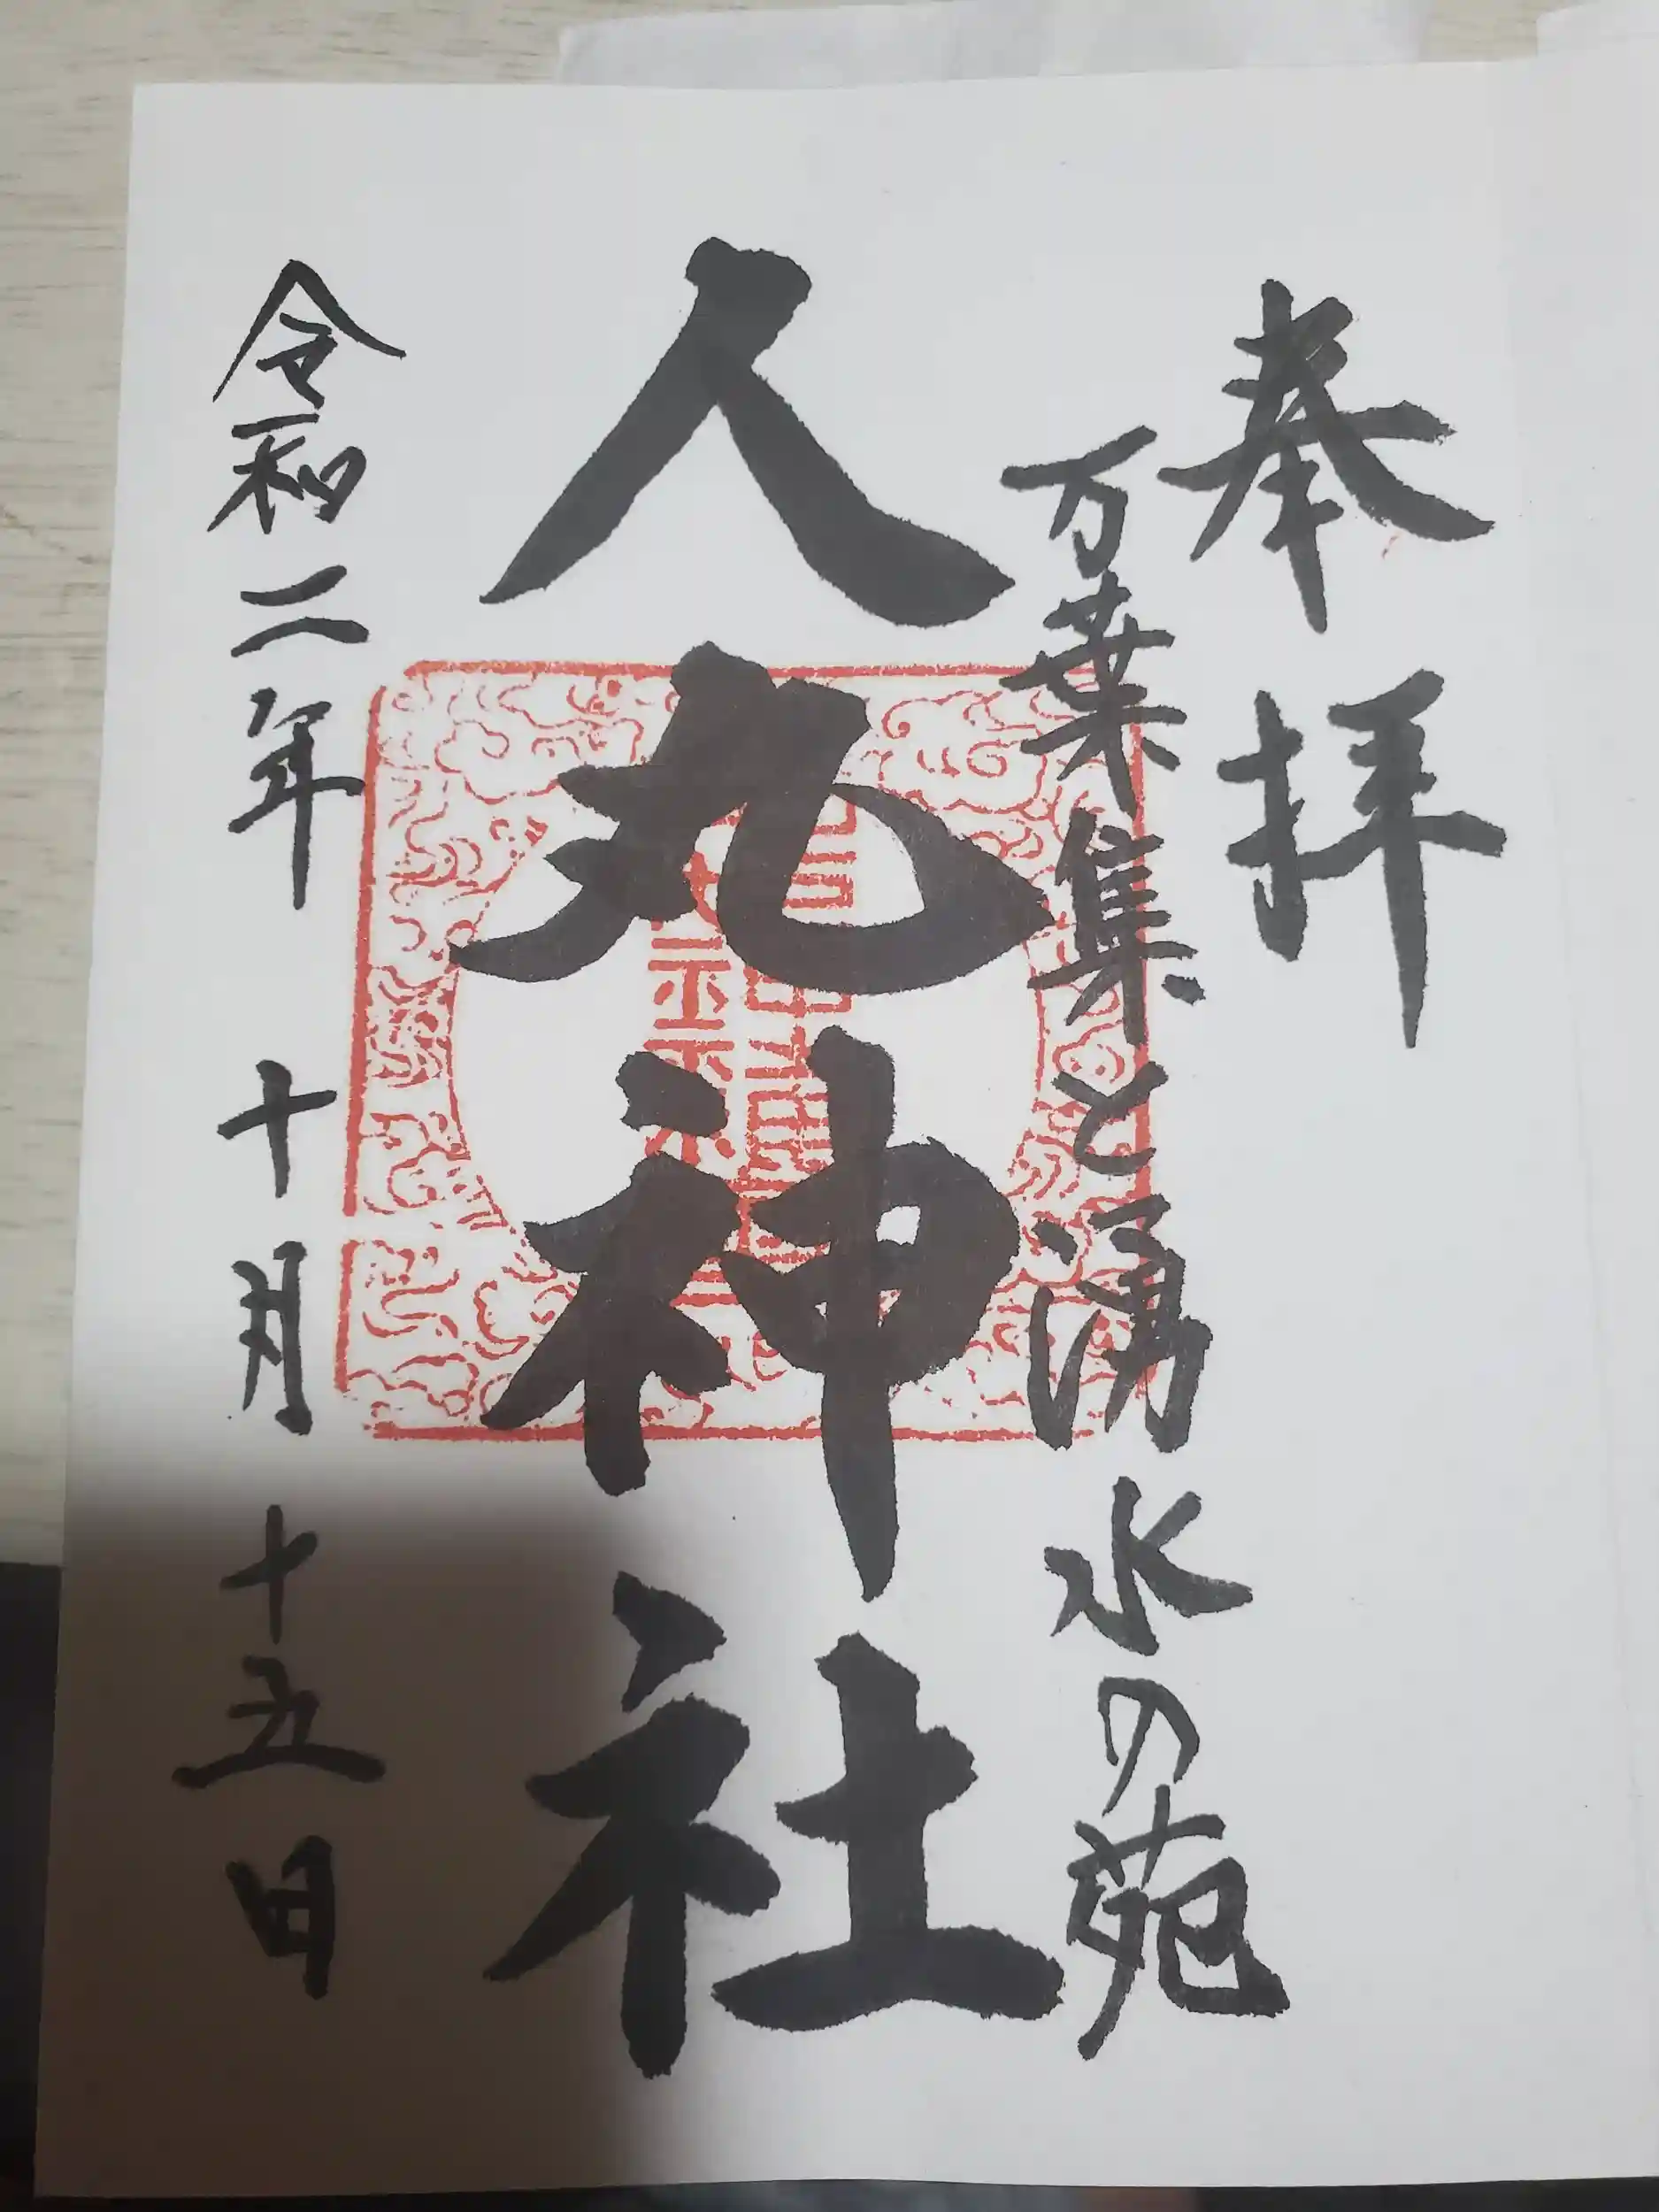 奉拝
万葉集と湧水の苑
人丸神社
令和二年 十月 十五日